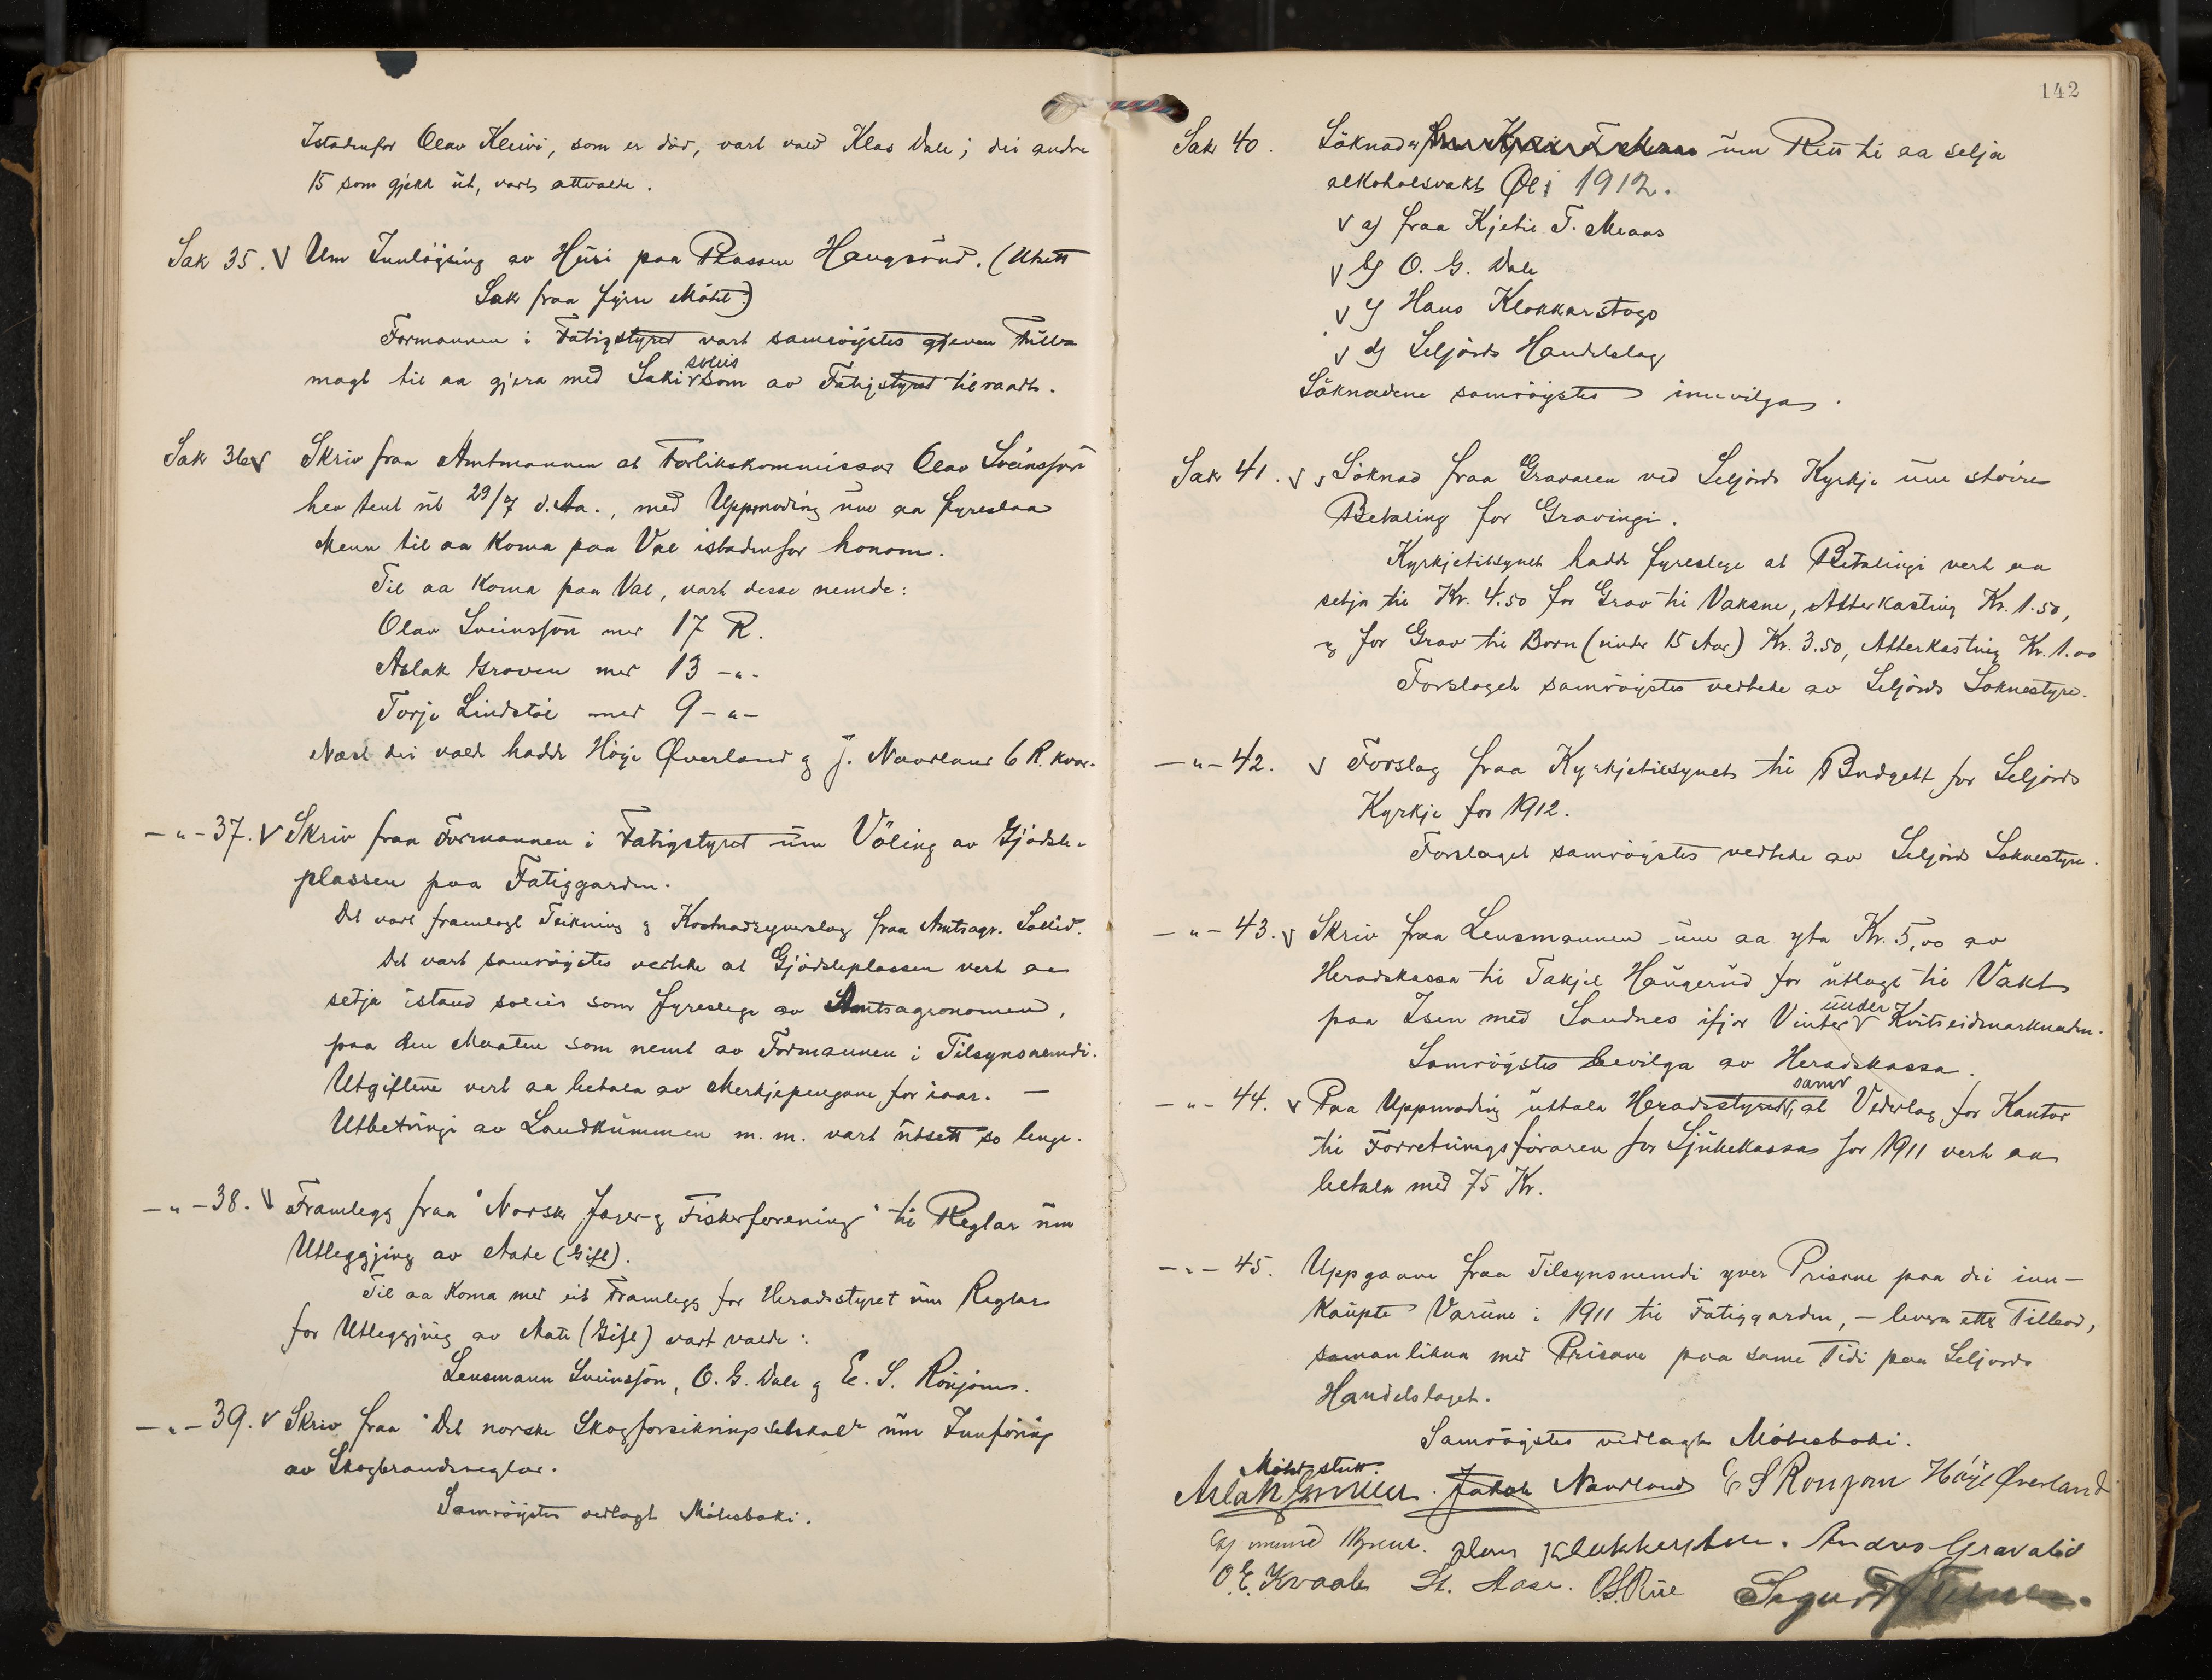 Istadenfor Olav Kleivi, som er död, vart vald Klas Dale; dei andre
15 som gjekk ut, vart attvalde.
Sak 35. V Um Innlöysing av Husi paa Plassen Haugsrud. (Utsett
Sak fraa fyrre Mötet)
Formannen i Fatigstyret vart samröystes gjeven Full=
magt til aa gjera med Saki soleis som av Fatigstyret tilraadt.
Sak 36 V Skriv fraa Amtmannen at Forlikskommissær Olav Sveinsson
hev tent ut 29/7 d.Aa., med Uppmoding um aa fyreslaa
Menn til aa koma paa Val istadenfor honom.
Til aa koma paa Val, vart desse nemde:
Olav Sveinsson med 17 R.
Aslak Groven med 13 -"-
Torje Lindstöl med 9 -"-
Næst dei valde hadde Höye Øverland og J. Nordland 6 R. kvar.
-"- 37. V Skriv fraa Formannen i Fatigstyret um Völing av Gjödsle-
plassen paa Fatiggarden.
Det vart framlagt Teikning og Kostnadsyverslag fraa Amtsagr. Sollid.
Det vart samröystes vedteke at Gjödsleplassen vert aa
setja istand soleis som fyreslege av Amtsagronomen,
paa den Maaten som nemt av Formannen i Tilsynsnemdi.
Utgiftene vert aa betala av Merkjepengane for iaar. —
Utbetringi av Landkummen m.m. vart utsett so lenge.
-"- 38. V Framlegg fraa "Norsk Jæger- og Fiskerforening" til Reglar um
Utleggjing av Aate (Gift).
Til aa koma med eit Framlegg for Heradsstyret um Reglar
for Utleggjing av Aate (Gift) vart valde:
Lensmann Sveinsson, O. G. Dale og E. S. Ronjom.
-"- 39. V Skriv fraa "Det norske Skogforsikringsselskab" um Innföring
av Skogbrandreglar.
Samröystes vedlagt Mötesboki.
142
Sak 40. Söknader um Rett til aa selja
alkoholsvakt Øl i 1912.
V a) fraa Kjetil T. Meaas
V b) O. G. Dale
V c) Hans Klokkarstogo
V d) Seljords Handelslag
Söknadene samröystes innvilga.
Sak 41. V Söknad fraa Gravaren ved Seljords Kyrkje um större
Betaling for Gravingi.
Kyrkjetilsynet hadde fyreslege at Betalingi vert aa
setja til Kr. 4.50 for Grav til Vaksne, Atterkasting Kr. 1.50,
og for Grav til Born (under 15 Aar) Kr. 3.50, Atterkasting Kr. 1.00
Forslaget samröystes vedteke av Seljords Soknestyre.
-"- 42. V Forslag fraa Kyrkjetilsynet til Budgett for Seljords
Kyrkje for 1912.
Forslaget samröystes vedteke av Seljords Soknestyre.
-"- 43. V Skriv fraa Lensmannen um aa yta Kr. 5,00 av
Heradskassa til Takjel Haugerud for utlagt til Vakt
paa Isen med Sundnes ifjor Vinter under Kvitseidmarknaden.
Samröystes bevilga av Heradskassa.
-"- 44. V Paa Uppmoding uttala Heradsstyret samr at Vederlag for Kontor
til Forretningsföraren for Sjukekassa for 1911 vert aa
betala med 75 Kr.
-"- 45. Uppgaave fraa Tilsynsnemdi yver Prisane paa dei inn-
kaupte Varune i 1911 til Fatiggarden, — levera etter Tilbod,
samanlikna med Prisane paa same Tidi paa Seljords
Handelslaget.
Samröystes vedlagt Mötesboki.
Mötet slutt.
Aslak Groven. Jakob Nordland E S Ronjom Höye Øverland
Hans Klokkerstoe. Andres Gravalid
O. E. Kvaale St. Aase. O.S. Rue Sigurd